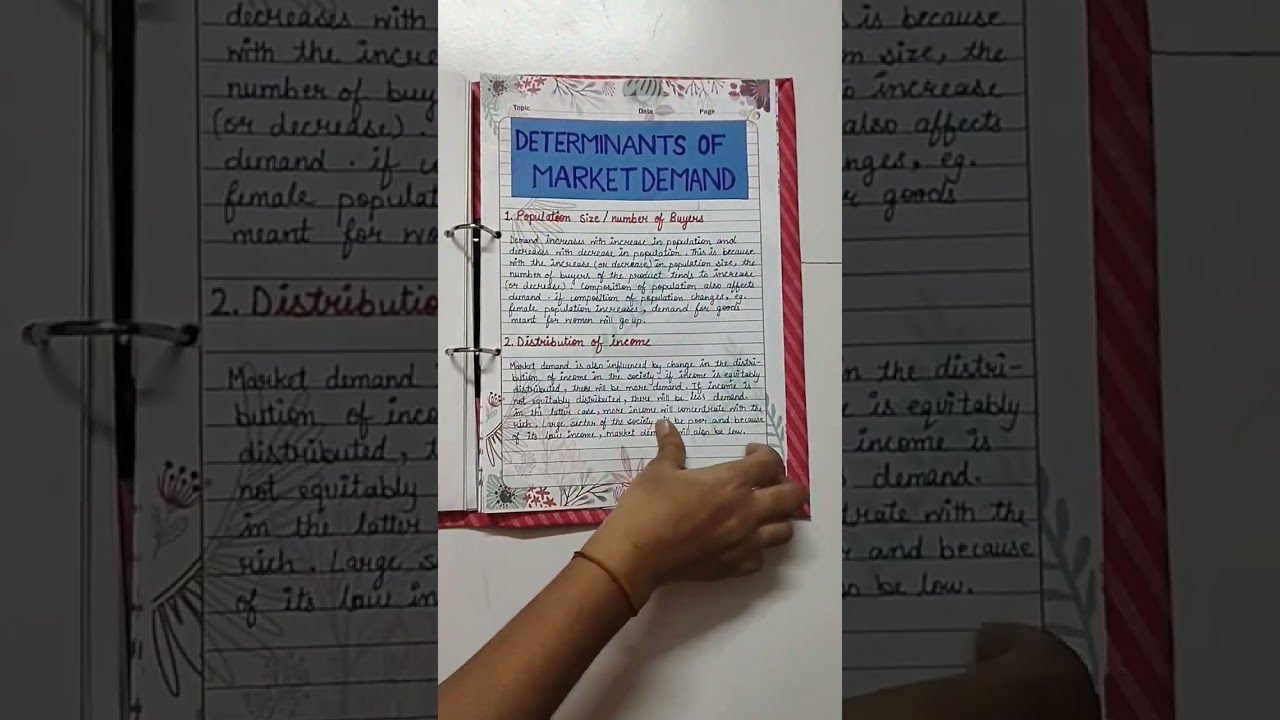 Topic Date Page
DETERMINANTS OF
MARKET DEMAND
1. Population size/number of Buyers
Demand increases with increase in population and
decreases with decrease in population. This is because
with the increase (or decrease) in population size, the
number of buyers of the product tends to increase
(or decrease). Composition of population also affects
demand. if composition of population changes, eg.
female population increases, demand for goods
meant for women will go up.
2. Distribution of income
Market demand is also influenced by change in the distri-
bution of income in the society. if income is equitably
distributed, there will be more demand. If income is
not equitably distributed, there will be less demand.
in the latter case, more income will concentrate with the
rich. Large sector of the society will be poor and because
of its low income, market demand will also be low.